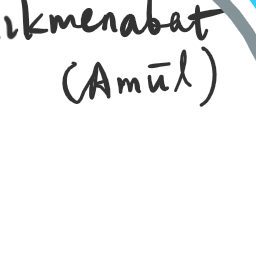 ıkmenabat
(Amūl)